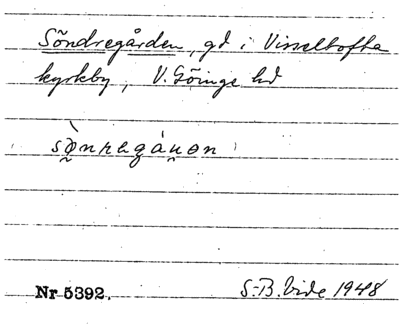 Söndregården, gd i Visseltofta
kyrkby, V. Göinge hd
sø̀nragáu̯ən
Nr 5392. S-B. Vide 1948